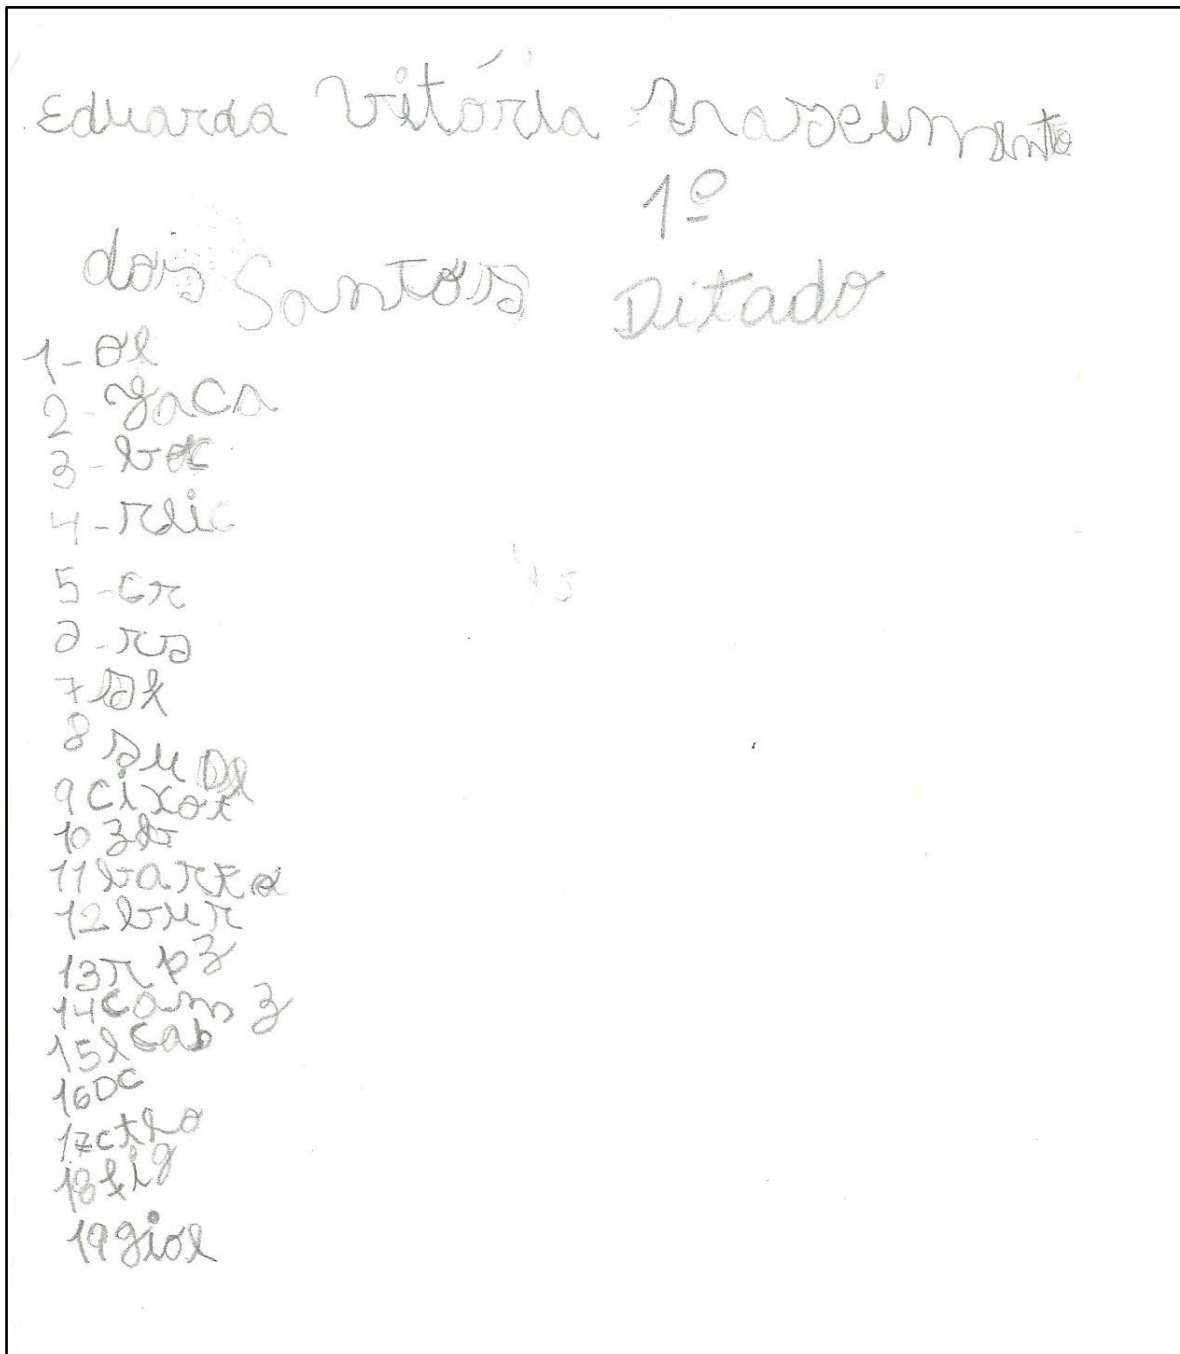 Eduarda Vitória Nascimento
1º
dos Santos Ditado
1-ol
2-jaca
3-
4-rlic
5-cr
6-rva
7
8 su De
9 cixot
10 zb
11 barta
12 bur
13 r p z
14 com z
15 l cab
16 DC
17 ctlo
18 lig
19 giol